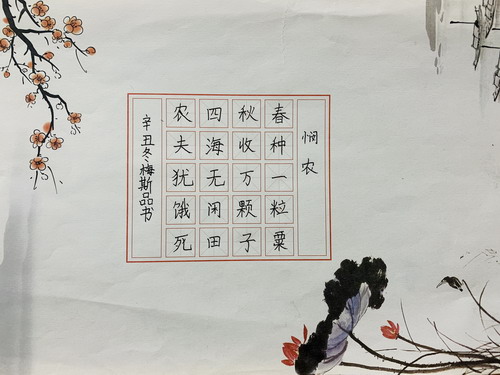 悯农
春种一粒粟
秋收万颗子
四海无闲田
农夫犹饿死
辛丑冬梅斯品书